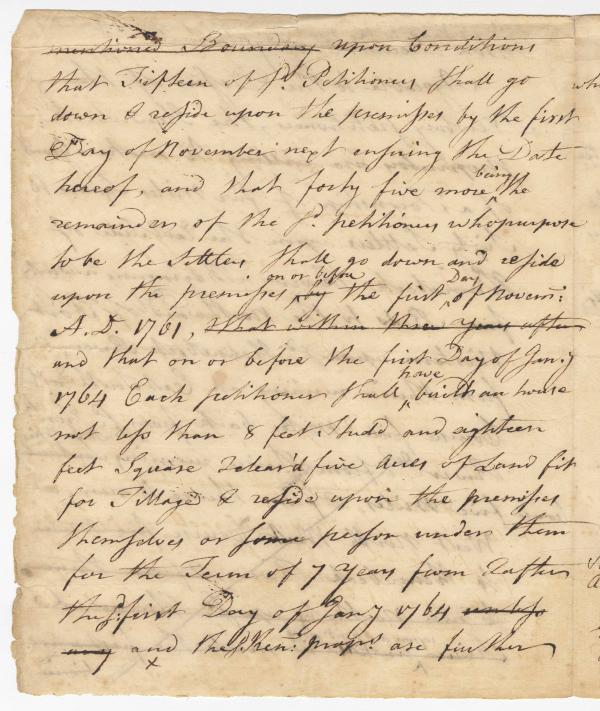 mentioned Boundary upon Conditions
that Fifteen of sd. Petitioners shall go
down & reside upon the premisses by the first
Day of November next ensuing the Date
hereof, and that forty five more being the
remainder of the sd. petitioners who purpose
to be the Settlers shall go down and reside
upon the premisses on or before by the first Day of Novemr:
A.D. 1761, that within three years after
and that on or before the first Day of Jany
1764 Each petitioner shall have built an house
not less than 8 feet Studd and eighteen
feet Square & clear'd five Acres of Land fit
for Tillage & reside upon the premisses
themselves or some person under them
for the Term of 7 Years from & after
the sd. first Day of Jany 1764 unless
any and the are further